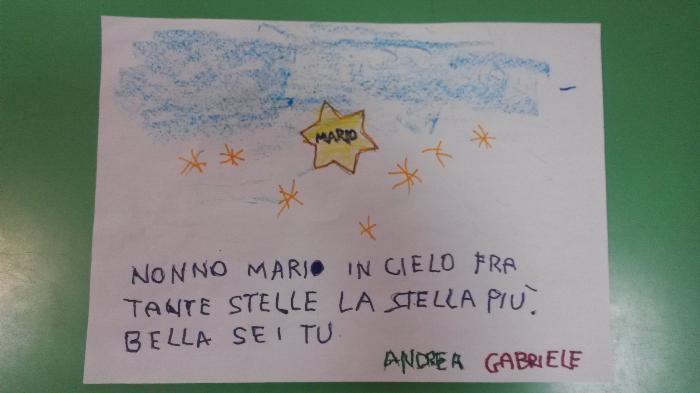 MARIO
NONNO MARIO IN CIELO FRA
TANTE STELLE LA STELLA PIÙ.
BELLA SEI TU.
ANDREA GABRIELE